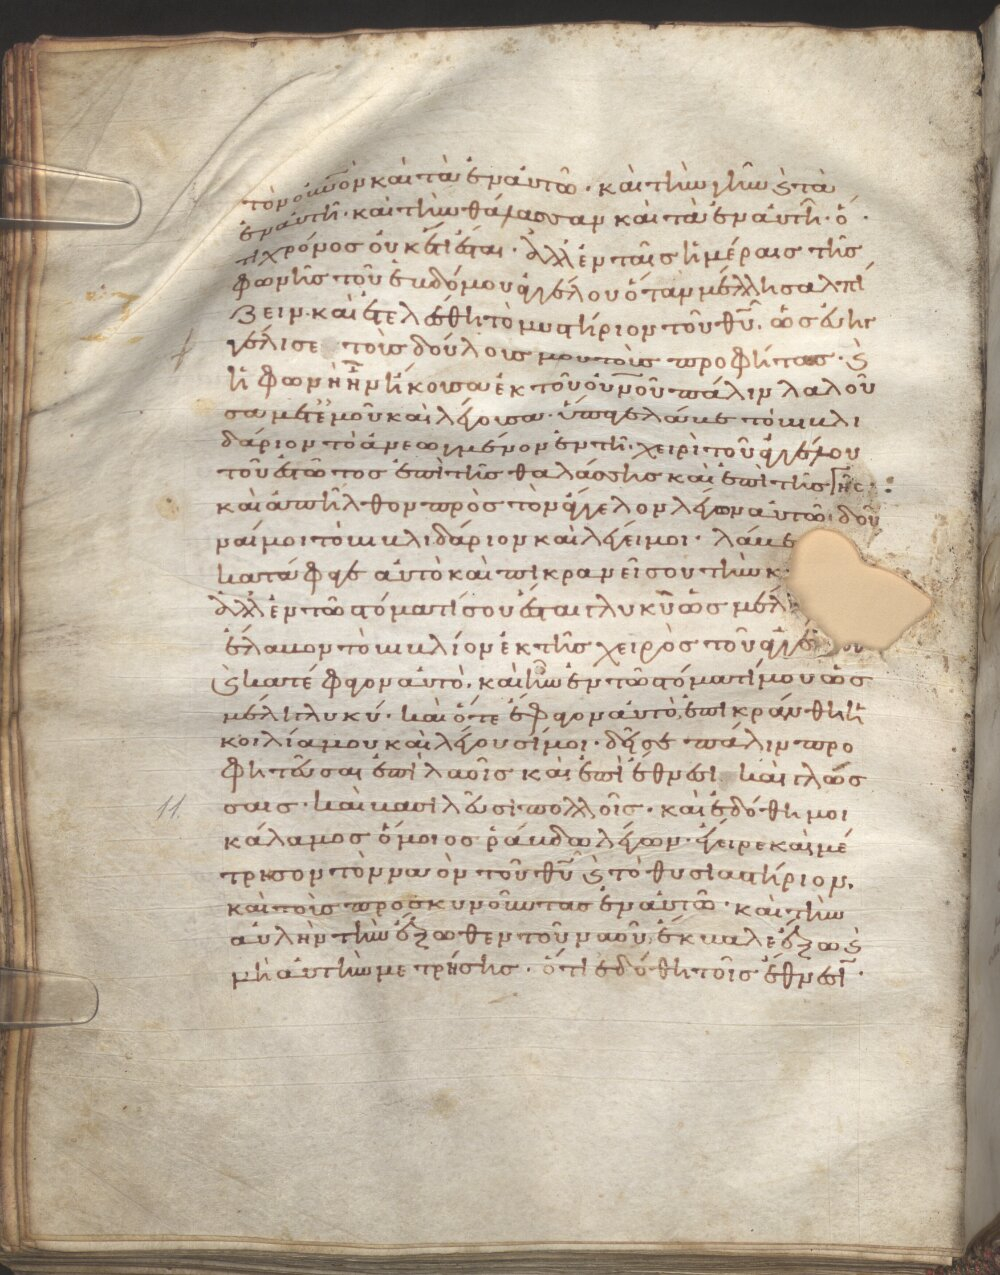 τὸν οὐνὸν καὶ τὰ ἐν αὐτῶ · καὶ τὴν γῆν ϗ τὰ
ἐν αὐτῆ · καὶ τὴν θάλασσαν καὶ τὰ ἐν αὐτῆ · ὅ
τι χρόνος οὐκ ἔτι ἔσται · ἀλλ' ἐν ταῖς ἡμέραις τῆς
φωνῆς τοῦ ἑβδόμου ἀγγέλου ὅταν μέλλη σαλπί
ζειν · καὶ ἐτελέσθη τὸ μυστήριον τοῦ θῦ · ὡς εὐηγ
γέλισε τοῖς δούλοις μου τοῖς προφήτας · ϗ
ἡ φωνὴ ἣν ἤκουσα ἐκ τοῦ οὐνοῦ πάλιν λαλοῦ
σα μετ' ἐμοῦ καὶ λέγουσα · ὕπαγε λάβε τὸ βιβλι
δάριον τὸ ἀνεωγμένον ἐν τῆ χειρὶ τοῦ ἀγγέλου
τοῦ ἑστῶτος ἐπὶ τῆς θαλάσσης καὶ ἐπὶ τῆς γῆς ·
καὶ ἀπῆλθον πρὸς τὸν ἄγγελον λέγων αὐτῶ · δοῦ
ναί μοι τὸ βιβλιδάριον καὶ λέγει μοι · λάβε
κατάφαγε αὐτὸ καὶ πικρανεῖ σου τὴν κ
ἀλλ' ἐν τῶ στόματί σου ἔσται γλυκὺ ὡς μέλ
ἔλαβον τὸ βιβλίον ἐκ τῆς χειρὸς τοῦ ἀγγέλου
ϗ κατέφαγον αὐτὸ · καὶ ἦν ἐν τῶ στόματί μου ὡς
μέλι γλυκύ · καὶ ὅτε ἔφαγον αὐτὸ, ἐπικράνθη ἡ
κοιλία μου καὶ λέγουσί μοι · δεῖ σε πάλιν προ
φητεῦσαι ἐπὶ λαοῖς καὶ ἐπὶ ἔθνεσι καὶ γλώσ
σαις · καὶ βασιλεῦσι πολλοῖς · καὶ ἐδόθη μοι
11. κάλαμος ὅμοιος ῥάβδω λέγων · ἔγειρε καὶ μέ
τρησον τὸν ναὸν τοῦ θῦ ϗ τὸ θυσιαστήριον,
καὶ τοὺς προσκυνοῦντας ἐν αὐτῶ · καὶ τὴν
αὐλὴν τὴν ἔξωθεν τοῦ ναοῦ, ἔκβαλε ἔξω ϗ
μὴ αὐτὴν μετρήσης · ὅτι ἐδόθη τοῖς ἔθνεσι ·